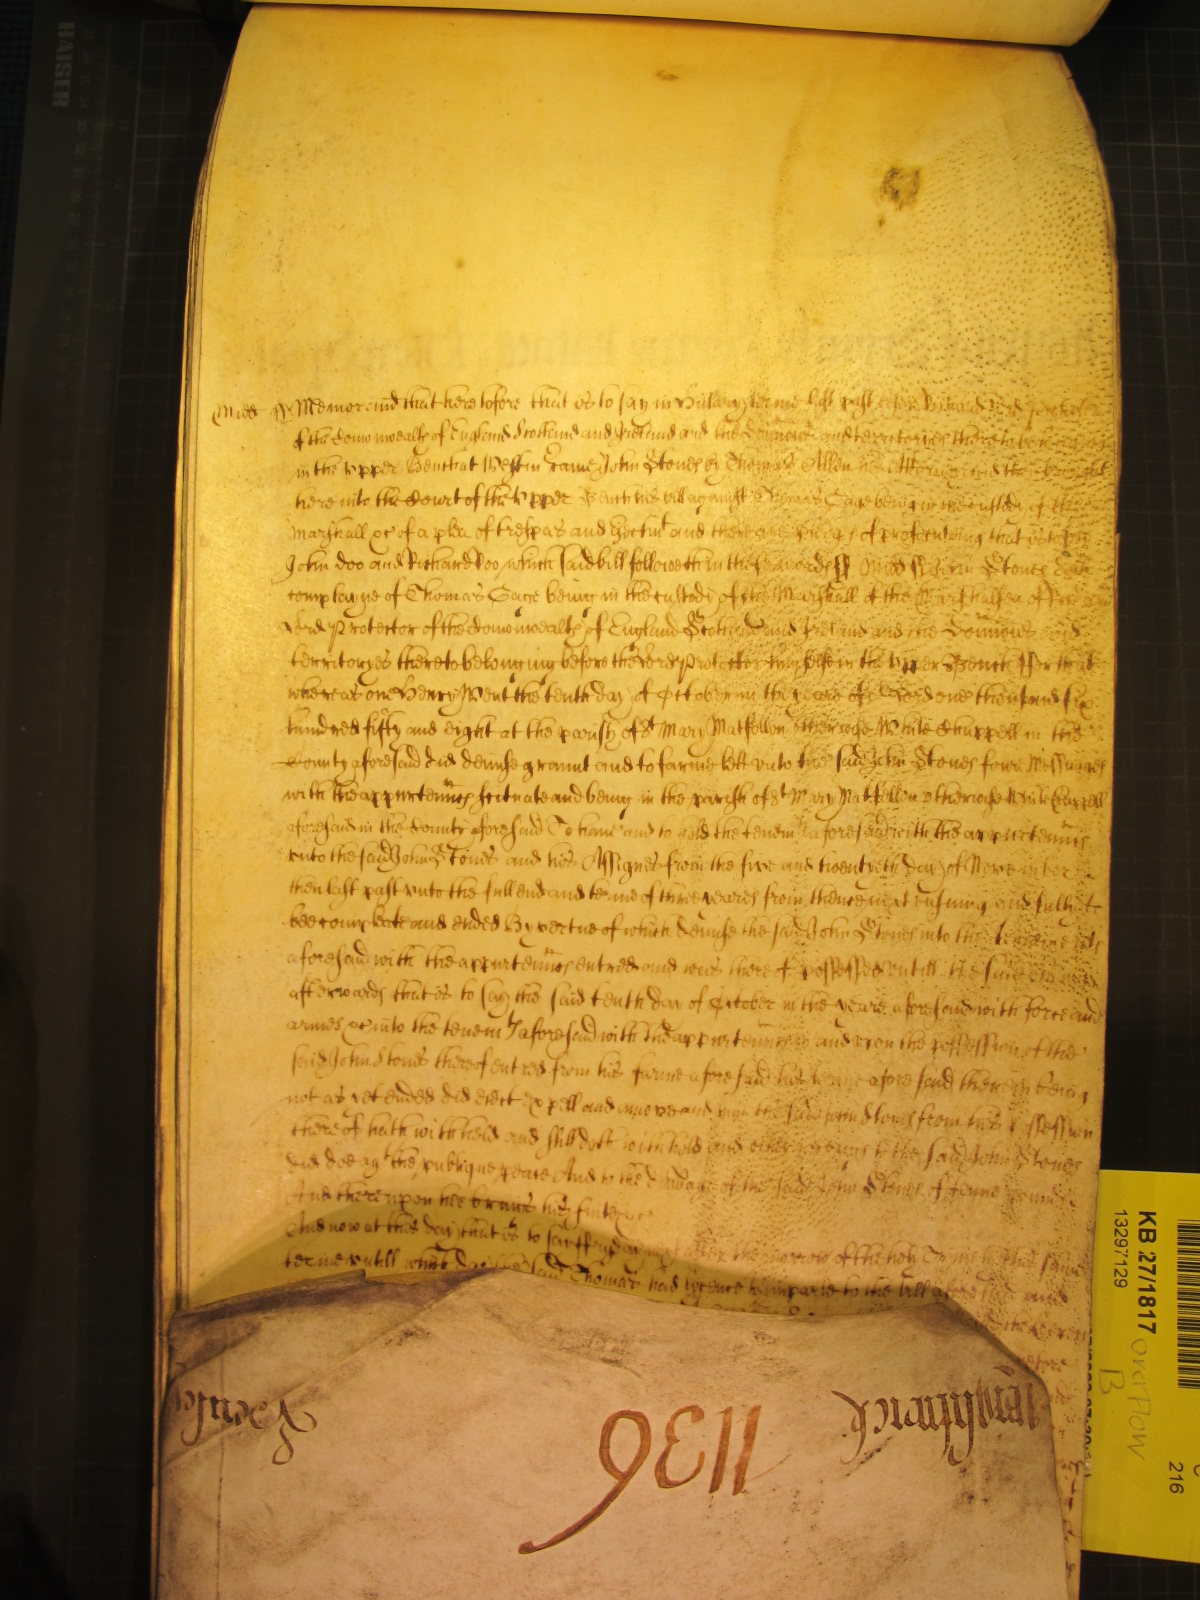 KAISER
Midd ss Memorand that heretofore that is to say in Hillary terme last past before Richard Lord Protector
of the Comonwealth of England Scotland and Ireland and the Dominions and territories thereto belonging
in the Upper Bench at Westm came John Stones by Thomas Allen his Attorney and then brought
here into the Court of the Upper Bench his bill against Thomas Gage being in the custody of the
Marshall &c of a plea of trespas and Eiectmt and there are pledges of prosecuting that is to say
John Doo and Richard Roo which said bill followeth in these words ss Midd ss John Stones doth
complayne of Thomas Gage being in the custody of the Marshall of the Marshalsea of
Lord Protector of the Comonwealth of England Scotland and Ireland and the Dominions and
territoryes thereto belonging before the Lord Protector himselfe in the Upper Bench For that
whereas one Henry Went the tenth day of October in the yeare of or Lord one thousand six
hundred fifty and eight at the parish of St Mary Matfellon otherwise White Chappell in the
County aforesaid did demise graunt and to farme lett unto the said John Stones foure Messuages
with the appurtennces scituate and being in the parish of St Mary Matfellon otherwise White Chappell
aforesaid in the County aforesaid To have and to hold the tenemts aforesaid with the appurtennces
unto the said John Stones and his Assignes from the five and twentyeth day of November
then last past unto the full end and terme of three yeares from thence next ensuing and fully to
bee compleate and ended By vertue of which demise the said John Stones into the tenements
aforesaid with the appurtennces entred and was thereof possessed untill the said Thomas
afterwards that is to say the said tenth day of October in the yeare aforesaid with force and
armes &c into the tenemts aforesaid with the appurtennces in and upon the possession of the
said John Stones thereof entred from his farme aforesaid his terme aforesaid therein being
not as yet ended did eiect expell and amove and him the said John Stones from his possession
thereof hath withheld and still doth withhold and other wrongs to the said John Stones
did doe agt the publique peace And to the damage of the said John Stones of pounds
And thereupon hee brings his suite &c
And now at this day that is to say fryday next after the morrow of the holy Trinity in this same
terme untill which day the said Thomas had lycence to imparle to the bill aforesaid and
1136
KB 27/1817
13297129
overflow
B
216